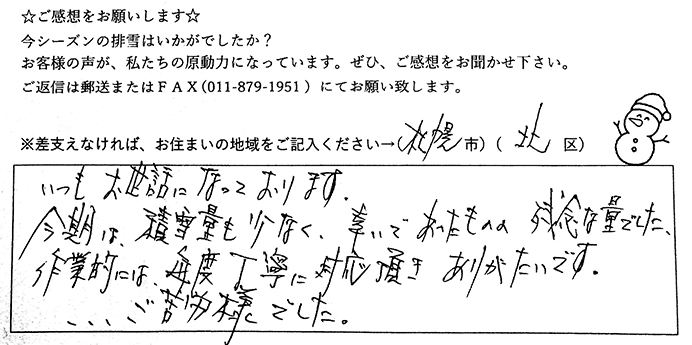 ☆ご感想をお願いします☆
今シーズンの排雪はいかがでしたか？
お客様の声が、私たちの原動力になっています。ぜひ、ご感想をお聞かせ下さい。
ご返信は郵送またはＦＡＸ（011-879-1951 ）にてお願い致します。
※差支えなければ、お住まいの地域をご記入ください→（札幌市）（ 北 区）
いつもお世話になっております。
今期は、積雪量も少なく、幸いであったものの 残念な量でした、
作業的には、毎度丁寧に対応頂き ありがたいです。
、、、ご苦労様でした。